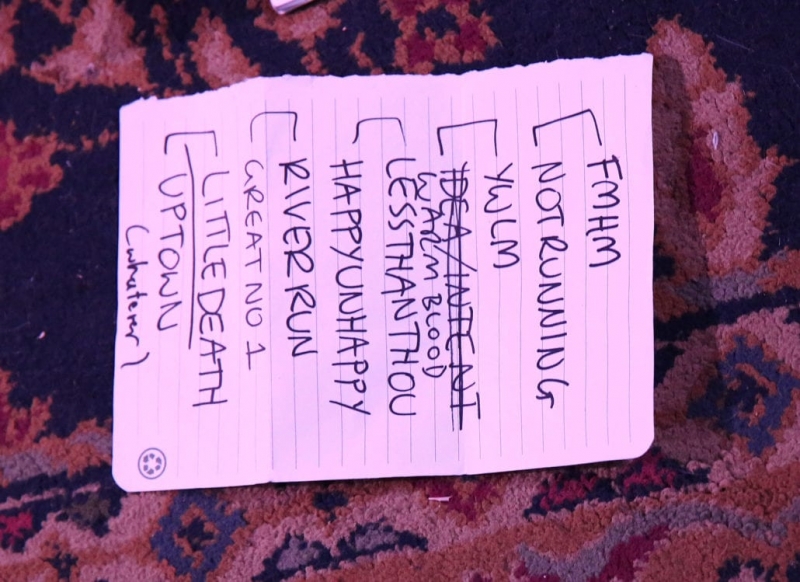 FMHM
NOT RUNNING
YWLM
IDEA/INTENT
WARM BLOOD
LESSTHANTHOU
HAPPYUNHAPPY
RIVER RUN
GREAT NO 1
LITTLE DEATH
UPTOWN
(whatever)